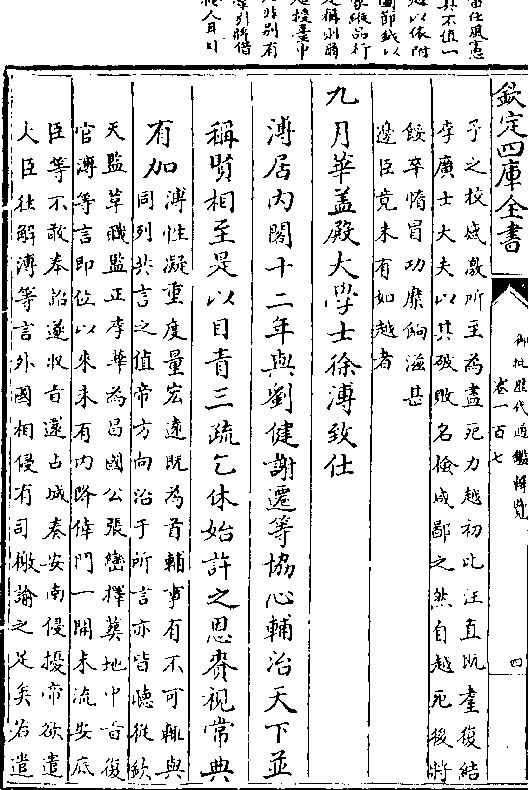 其不值一
欽定四庫全書
御批歷代通鑑輯覽
卷一百七
四
子之校感激所至為盡死力越初比汪直既羣復結
李廣士大夫以其破敗名檢咸鄙之然自越死後將
餒卒惰冒功糜餉滋甚
邊臣竟未有如越者
九月華蓋殿大學士徐溥致仕
溥居内閣十二年與劉健謝遷等協心輔治天下並
稱賢相至是以目眚三疏乞休始許之恩賚視常典
有加
溥性凝重度量宏遠既為首輔事有不可輒與
同列共言之值帝方向治于所言亦皆聽從欽
天監革職監正李華為昌國公張巒擇葬地中旨復
官溥等言即位以來未有内降倖門一開末流安底
臣等不敢奉詔遂收旨還占城奏安南侵擾帝欲遣
大臣往解溥等言外國相侵有司檄諭之足矣若遣